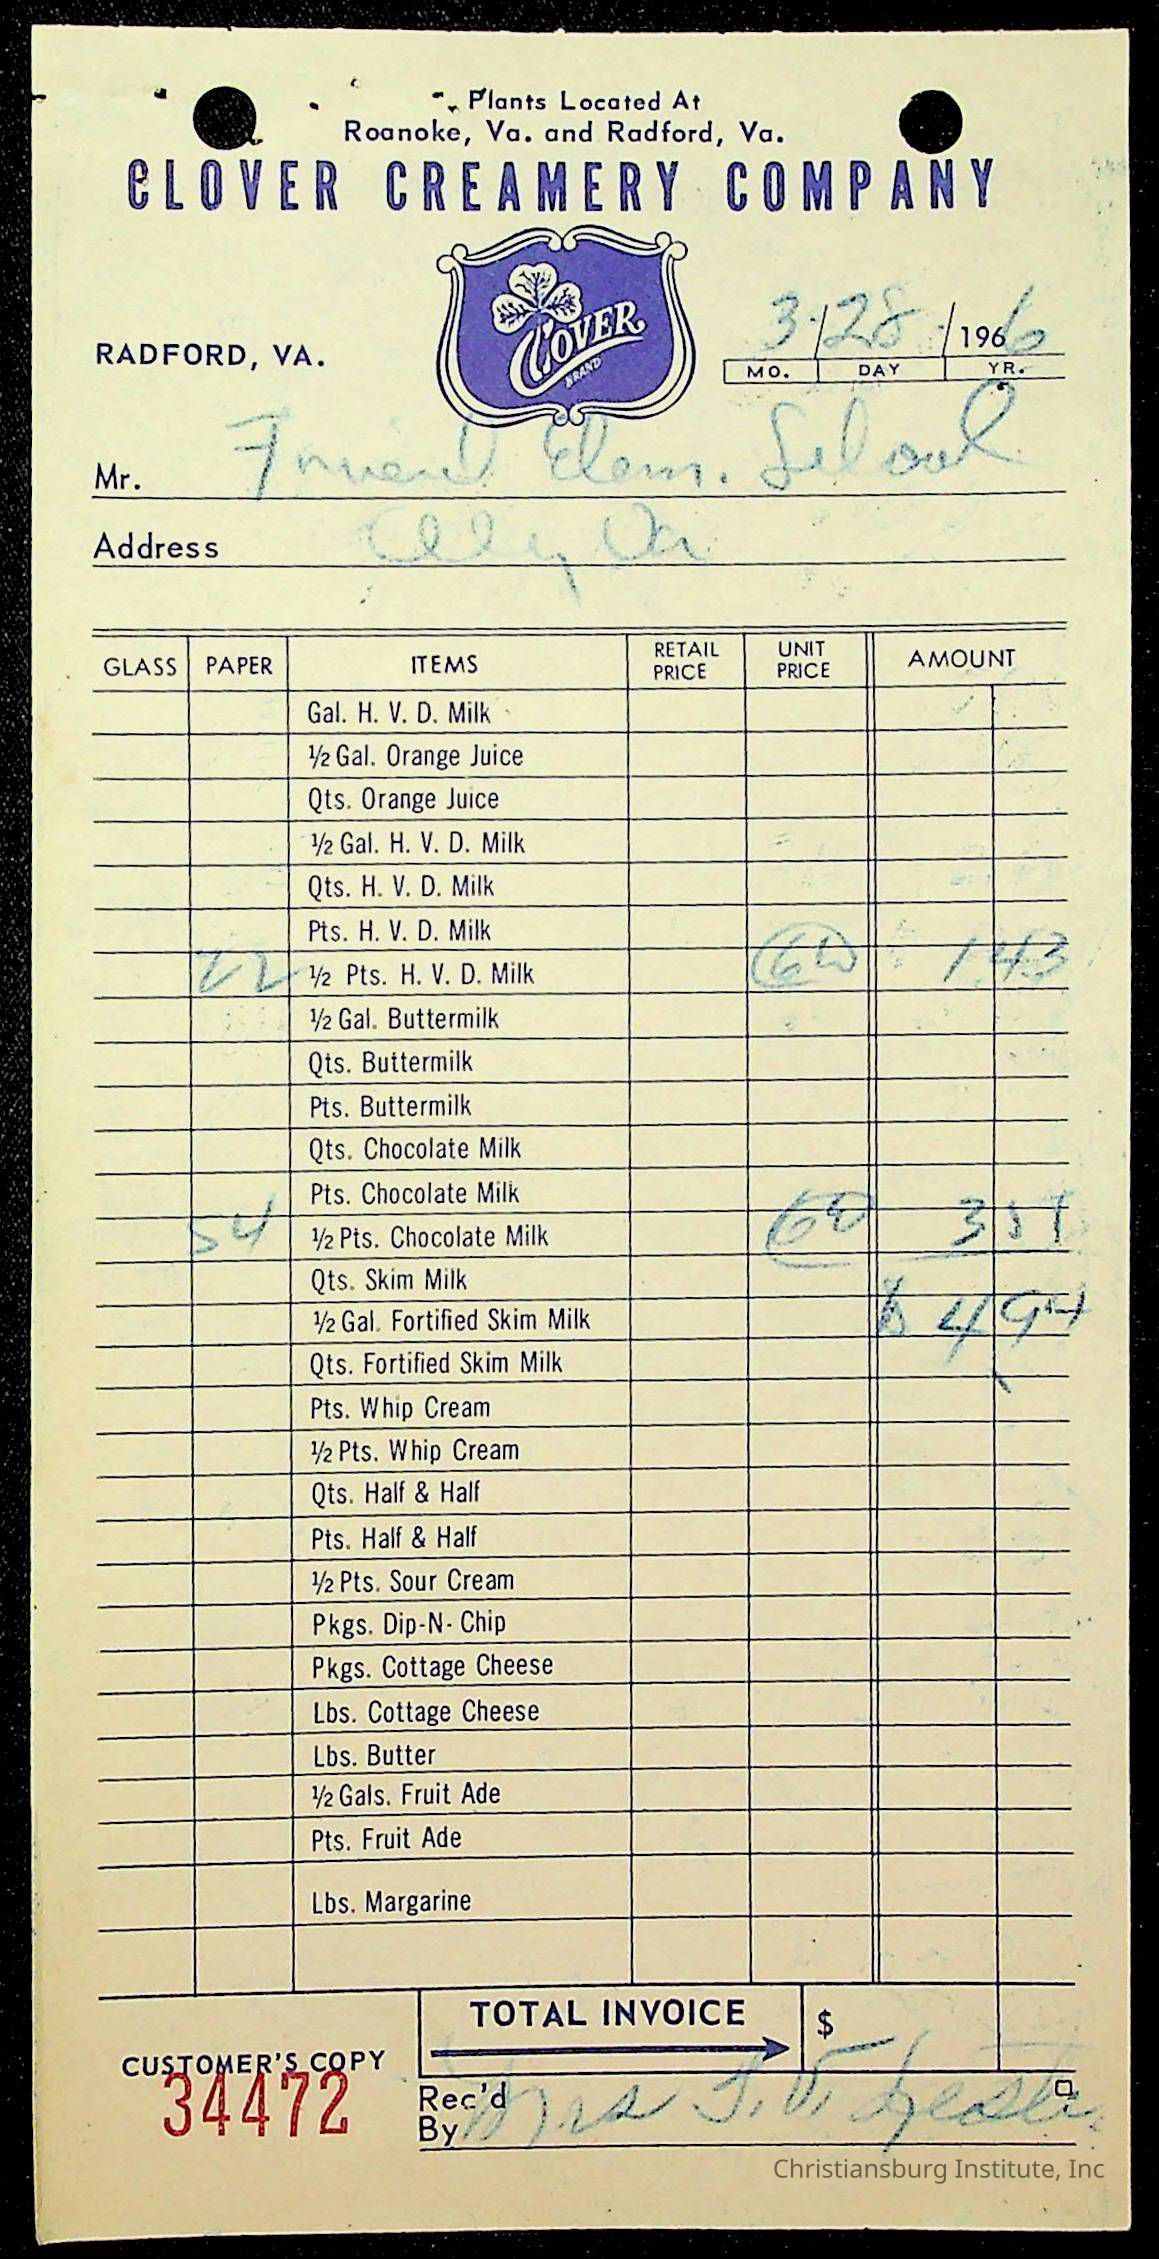 Plants Located At
Roanoke, Va. and Radford, Va.
CLOVER CREAMERY COMPANY
CLOVER
BRAND
RADFORD, VA.
3/28/1966
MO. DAY YR.
Mr. Friend Elem. School
Address Va
GLASS PAPER ITEMS RETAIL PRICE UNIT PRICE AMOUNT
Gal. H. V. D. Milk
½ Gal. Orange Juice
Qts. Orange Juice
½ Gal. H. V. D. Milk
Qts. H. V. D. Milk
Pts. H. V. D. Milk
22 ½ Pts. H. V. D. Milk 1 43
½ Gal. Buttermilk
Qts. Buttermilk
Pts. Buttermilk
Qts. Chocolate Milk
Pts. Chocolate Milk
54 ½ Pts. Chocolate Milk 3 51
Qts. Skim Milk
½ Gal. Fortified Skim Milk $ 4 94
Qts. Fortified Skim Milk
Pts. Whip Cream
½ Pts. Whip Cream
Qts. Half & Half
Pts. Half & Half
½ Pts. Sour Cream
Pkgs. Dip-N-Chip
Pkgs. Cottage Cheese
Lbs. Cottage Cheese
Lbs. Butter
½ Gals. Fruit Ade
Pts. Fruit Ade
Lbs. Margarine
TOTAL INVOICE $
CUSTOMER'S COPY
34472
Rec'd
By Mrs
Christiansburg Institute, Inc